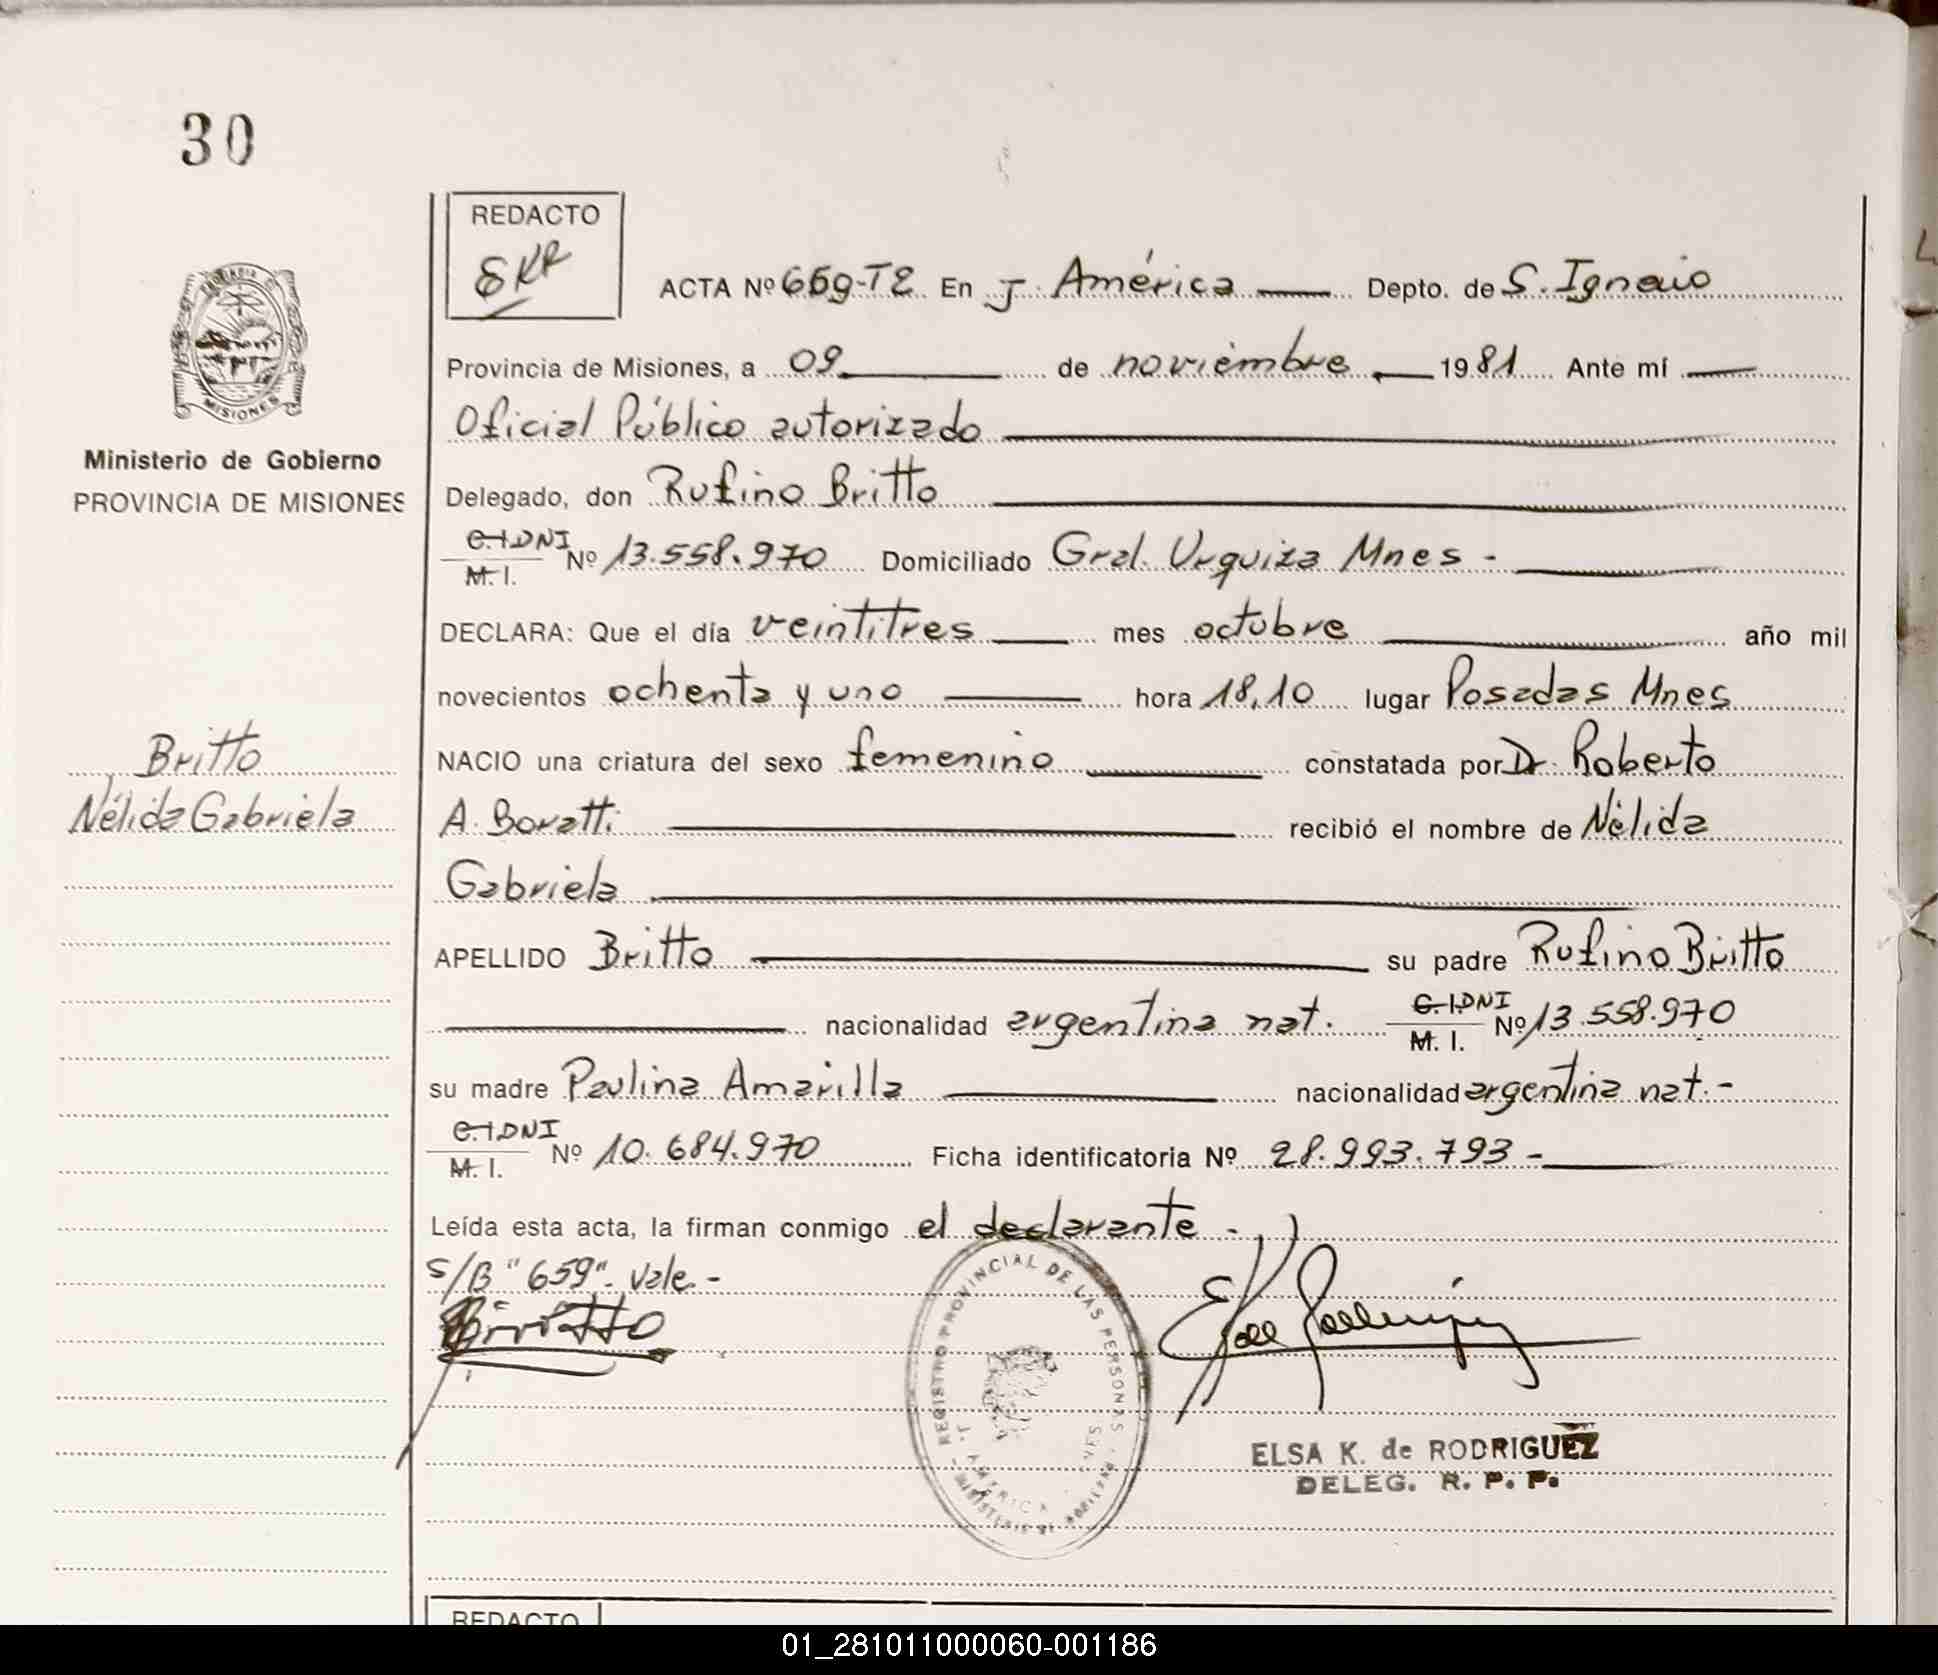 30
REDACTO
EKR
ACTA Nº 659-T2 En J. América Depto. de S. Ignacio
Provincia de Misiones, a 09 de noviembre 1981 Ante mí
Oficial Público autorizado
Ministerio de Gobierno
PROVINCIA DE MISIONES
Delegado, don Rufino Britto
C.I. DNI M. I. Nº 13.558.970 Domiciliado Gral. Urquiza Mnes -
DECLARA: Que el día veintitres mes octubre año mil
novecientos ochenta y uno hora 18,10 lugar Posadas Mnes
Britto
Nélida Gabriela
NACIO una criatura del sexo femenino constatada por Dr. Roberto
A. Boratti recibió el nombre de Nélida
Gabriela
APELLIDO Britto su padre Rufino Britto
nacionalidad argentina nat. C.I. DNI M. I. Nº 13.558.970
su madre Paulina Amarilla nacionalidad argentina nat.-
C.I. DNI M. I. Nº 10.684.970 Ficha identificatoria Nº 28.993.793-
Leída esta acta, la firman conmigo el declarante -
S/B "659". Vale.-
Britto
REGISTRO PROVINCIAL DE LAS PERSONAS
J. AMERICA
MISIONES
ELSA K. de RODRIGUEZ
DELEG. R. P. P.
REDACTO
01_281011000060-001186